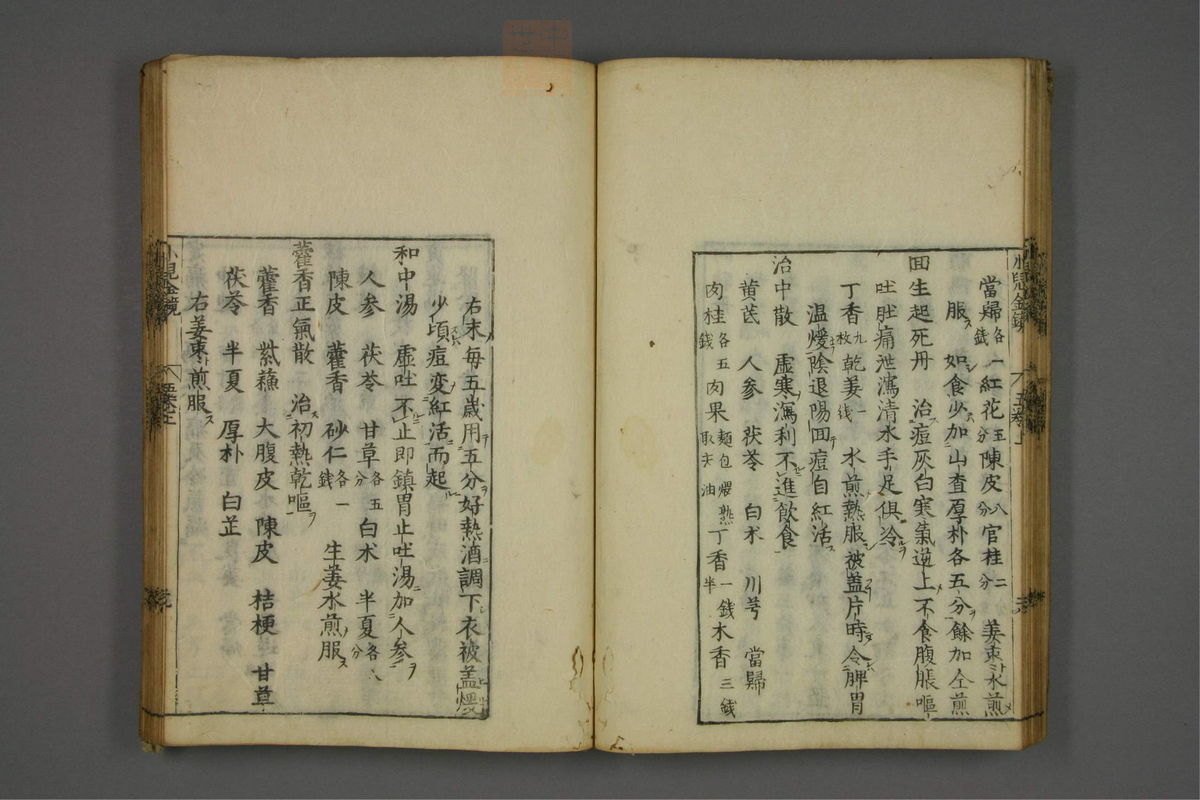 當歸各一錢紅花五分陳皮八分官桂二分姜棗水煎
服如食少加山査厚朴各五分餘加仝煎
回生起死丹治痘灰白寒氣逆上不食腹脹嘔
吐肚痛泄瀉清水手足俱冷
丁香九枚乾姜一錢水煎熱服被盖片時令脾胃
温煖陰退陽回痘自紅活
治中散虛寒瀉利不進飲食
黄芪人参茯苓白朮川芎當歸
肉桂各五錢肉果麺包煨熟取去油丁香一錢半木香三錢
小兒金鏡
五卷上
右末毎五歳用五分好熱酒調下衣被盖煖
少頃痘変紅活而起
和中湯虛吐不止即鎮胃止吐湯加人参
人参茯苓甘草各五分白朮半夏各八分
陳皮藿香砂仁各一錢生姜水煎服
藿香正氣散治初熱乾嘔
藿香紫蘓大腹皮陳皮桔梗甘草
茯苓半夏厚朴白芷
右姜棗煎服
小兒金鏡
五卷上